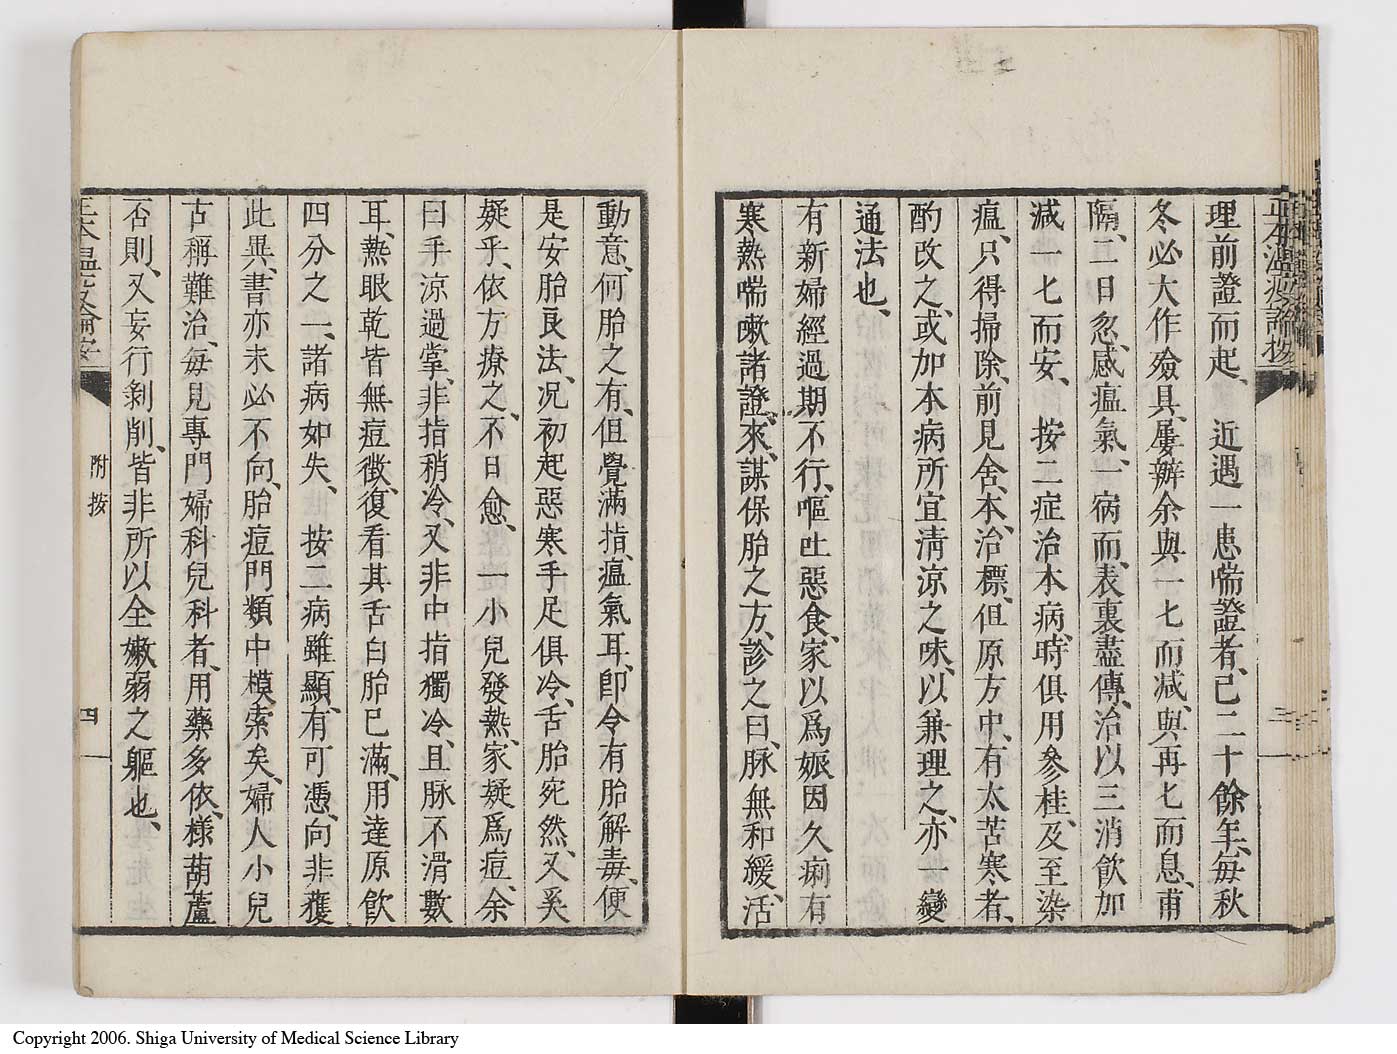 正本瘟疫論按
理前證而起、近遇一患喘證者、已二十餘年、每秋
冬必大作殮具、屢辦余與一七而減、與再七而息、甫
隔、二日忽、感瘟氣、一病而、表裏盡傳、治以三消飲加
減一七而安、按二症治本病、時俱用參桂、及至染
瘟、只得掃除、前見舍、本、治標、但原方中、有太苦寒者、
酌改之、或加本病所宜清涼之味、以兼理之、亦一變
通法也、
有新婦、經過期不行、嘔吐惡食、家以爲娠、因久痢有
寒熱喘嗽諸證、來、謀保胎之方、診之曰、脉無和緩、活
動意、何胎之有、但覺滿指、瘟氣耳、卽令有胎解毒、便
是安胎良法、况初起惡寒手足俱冷、舌胎宛然、又奚
疑乎、依方療之、不日愈、一小兒發熱、家疑爲痘、余
曰手涼過掌、非指稍冷、又非中指獨冷、且脉不滑數
耳、熱眼乾皆無痘徵、復看其舌白胎已滿、用達原飲
四分之一、諸病如失、按二病雖顯、有可憑、向非獲
此異、書亦未必不向、胎痘門類中模索矣、婦人小兒
古稱難治、每見專門婦科兒科者、用藥多依、樣葫蘆
否則、又妄行剝削、皆非所以全嫩弱之軀也、
正本瘟疫論按
附按
四
Copyright 2006. Shiga University of Medical Science Library